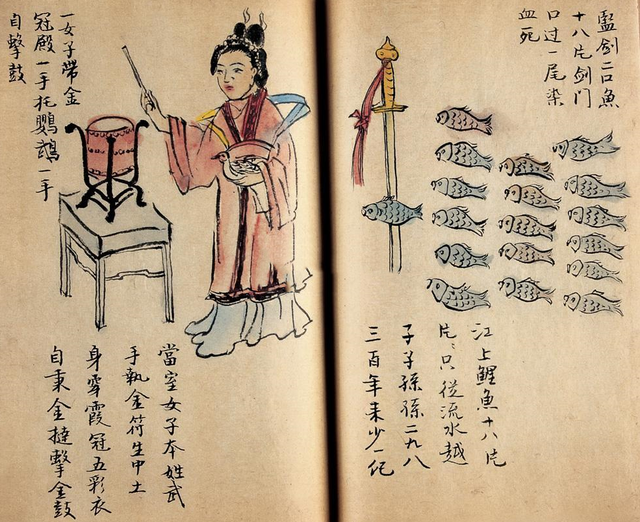 監劍二口魚
十八片剑門
口过一尾染
血死
江上鯉魚十八片
片〻只從流水越
子子孫孫二九八
三百年来少一紀
一女子帶金
冠殿一手托鸚鵡一手
自擊鼓
當室女子本姓武
手執金符生甲土
身穿霞冠五彩衣
自秉金撾擊金鼓